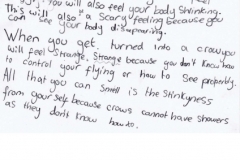 You will also feel your body shrinking.
This will also a scary feeling because you
can see your body disapearing.
When you get turned into a crow you
will feel strange. Strange because you don't know how
to control your flying or how to see properly.
All that you can smell is the stinkyness
from yourself because crows cannot have showers
as they dont know how to.